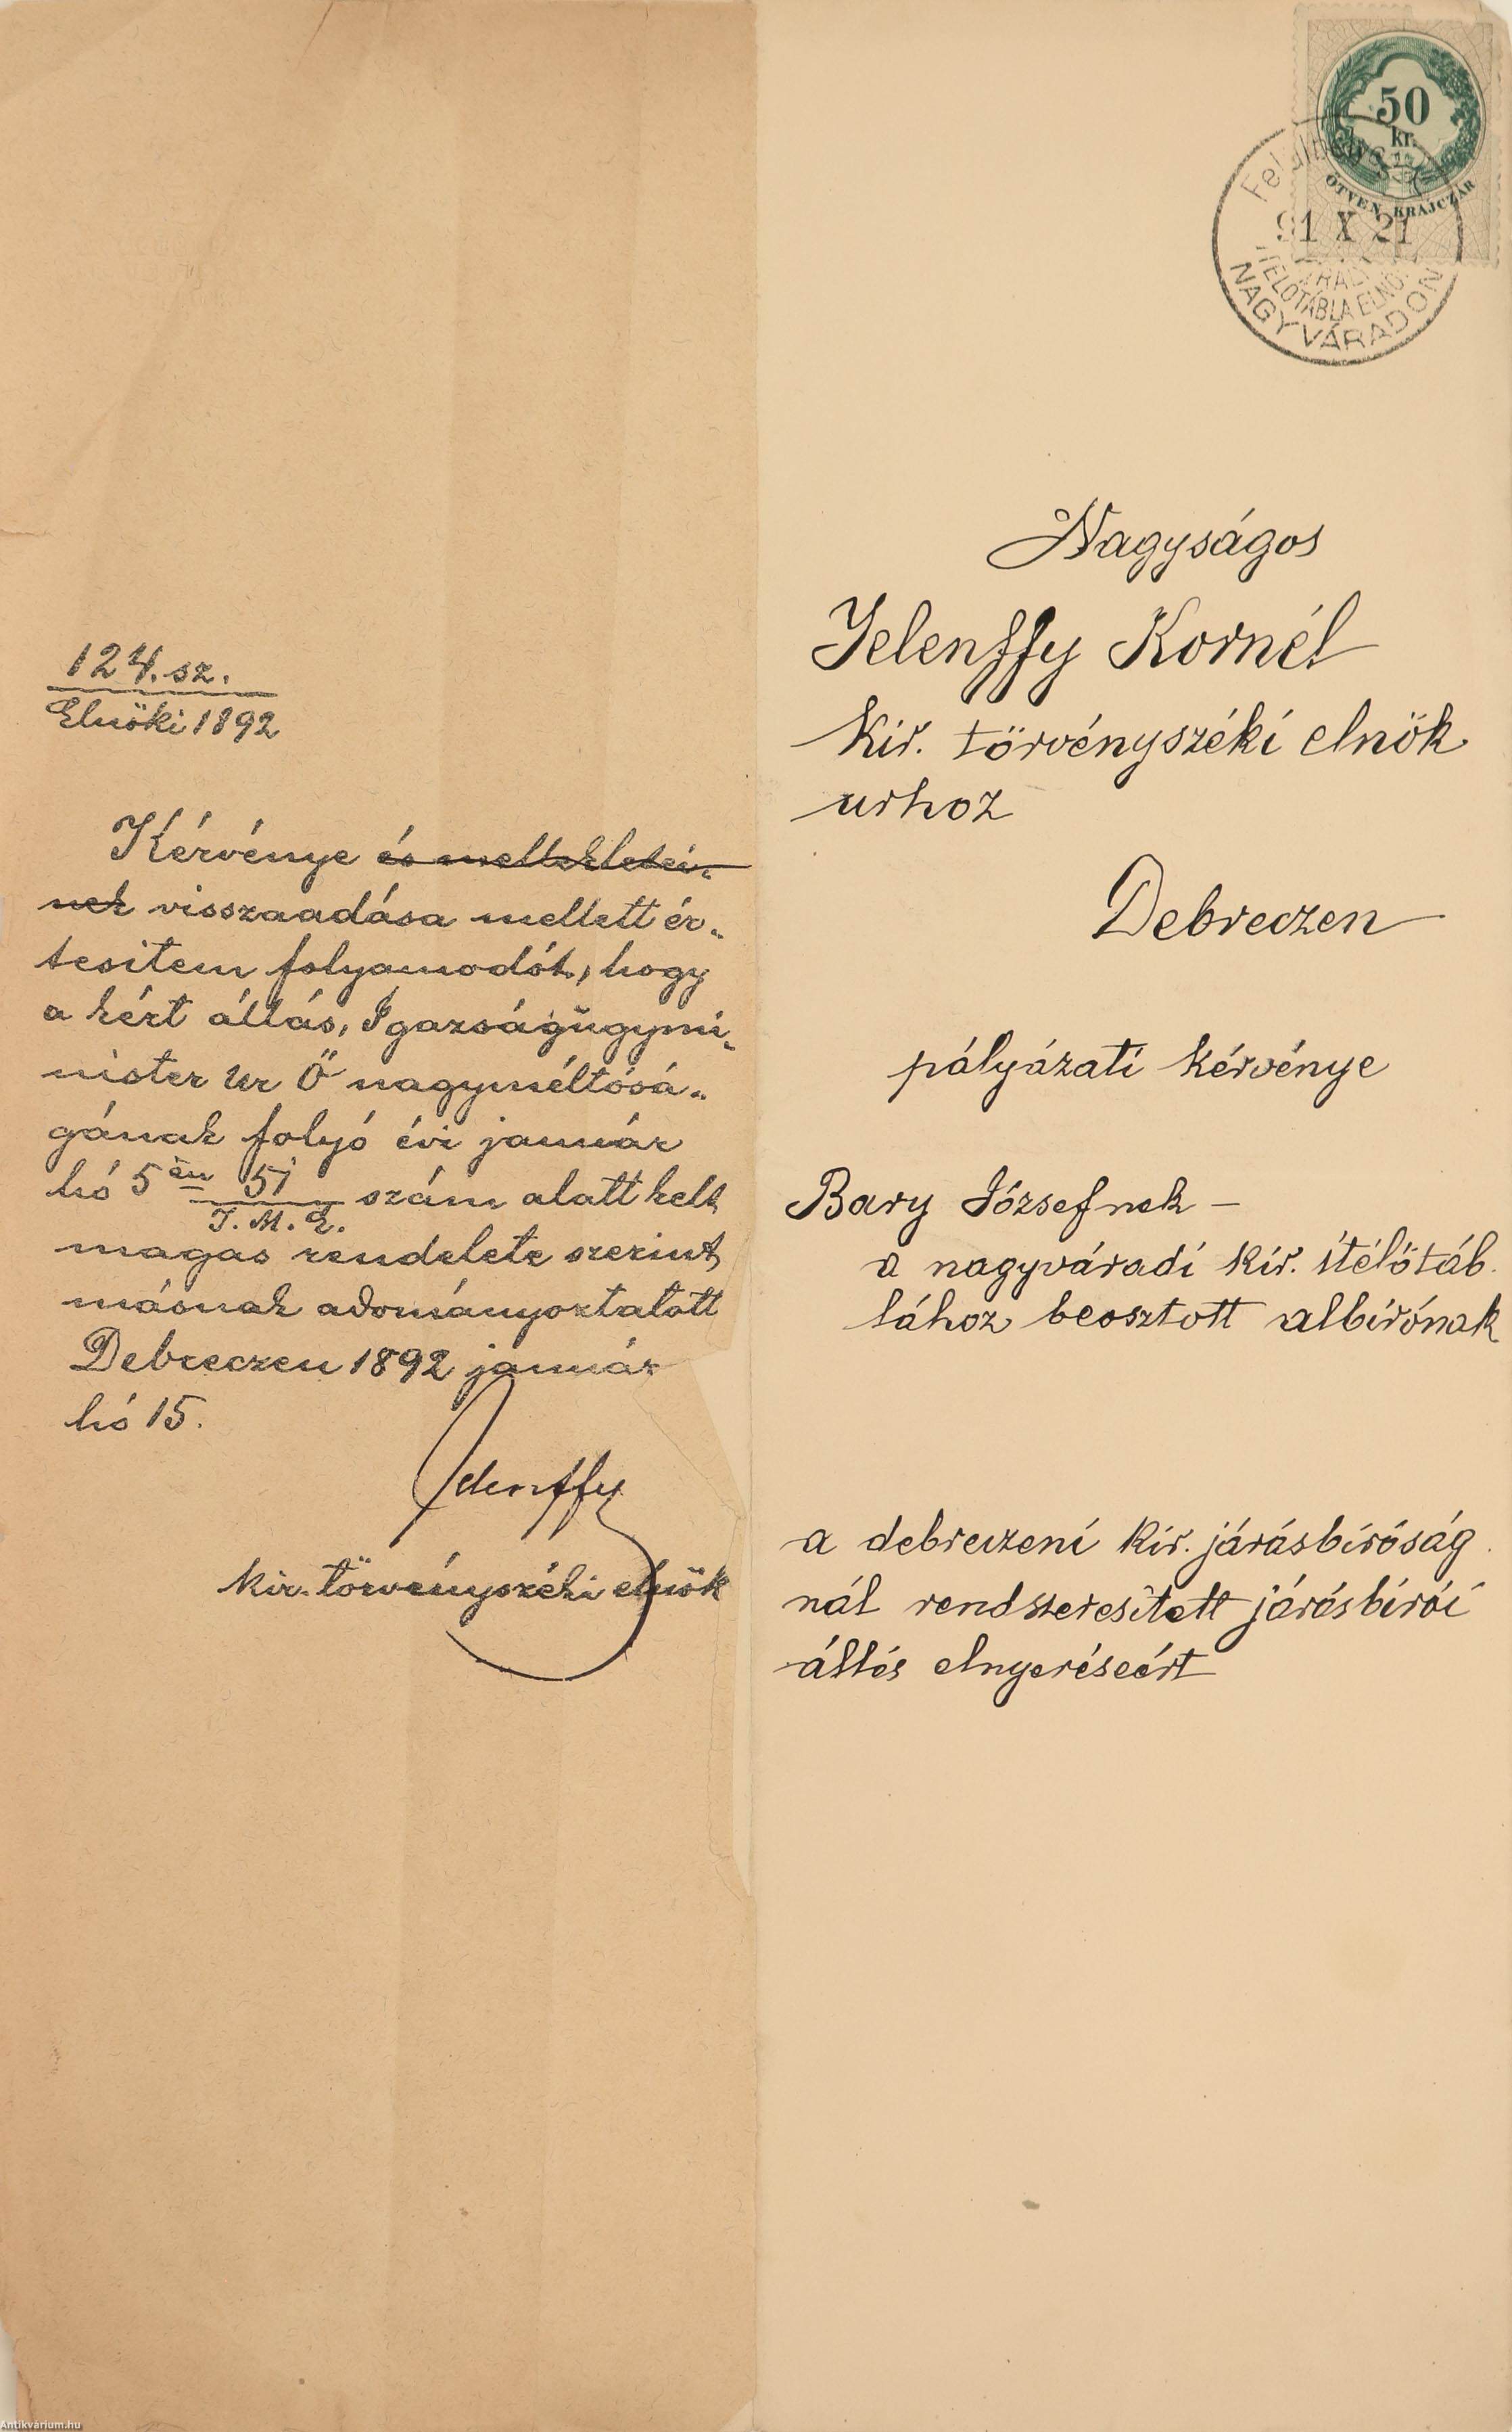 124. sz.
Elnöki 1892
Kérvénye és mellekletei„
nek visszaadása mellett ér„
tesitem folyamodót, hogy
a kért állás, Igazságügymi„
nister Ur Ő nagyméltósá„
gának folyó évi január
hó 5én 51 szám alatt kelt
I. M. E.
magas rendelete szerint
másnak adományoztatott
Debreczen 1892 január
hó 15.
Jelenffy
kir. törvényszéki elnök
50
kr.
ÖTVEN KRAJCZÁR
91 X 21
ITÉLŐTÁBLA ELNÖK
NAGYVÁRADON
Nagyságos
Jelenffy Kornél
Kir. törvényszéki elnök
urhoz
Debreczen
pályázati kérvénye
Bary Józsefnek –
a nagyváradi kir. itélőtáb
lához beosztott albirónak
a debreczeni kir. járásbiróság
nál rendszeresitett járásbirói
állás elnyeréseért
Antikvárium.hu